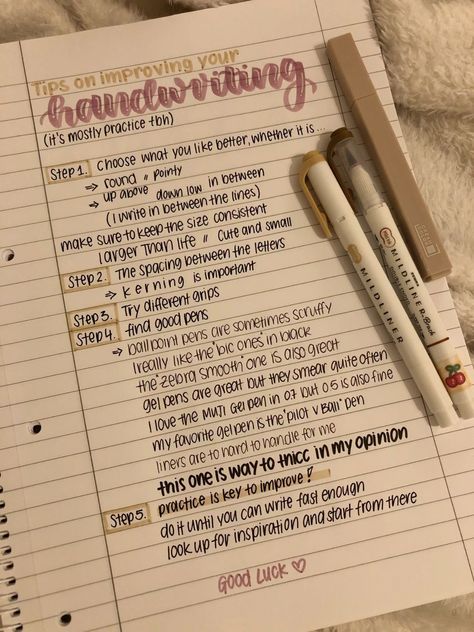 Tips on improving your
handwriting
(it's mostly practice tbh)
Step 1. Choose what you like better, whether it is...
→ round // pointy
→ up above down low in between
(I write in between the lines)
make sure to keep the size consistent
larger than life // cute and small
Step 2. The spacing between the letters
→ kerning is important
Step 3. Try different grips
Step 4. find good pens
→ ballpoint pens are sometimes scruffy
I really like the "bic" ones in black
the "zebra smooth" one is also great
gel pens are great but they smear quite often
I love the MUJI Gel pen in 07 but 05 is also fine
my favorite gel pen is the "pilot v Ball" pen
liners are to hard to handle for me
this one is way to thicc in my opinion
Step 5. practice is key to improve!
do it until you can write fast enough
look up for inspiration and start from there
Good Luck ♡
MILDLINER
MILDLINER
Brush